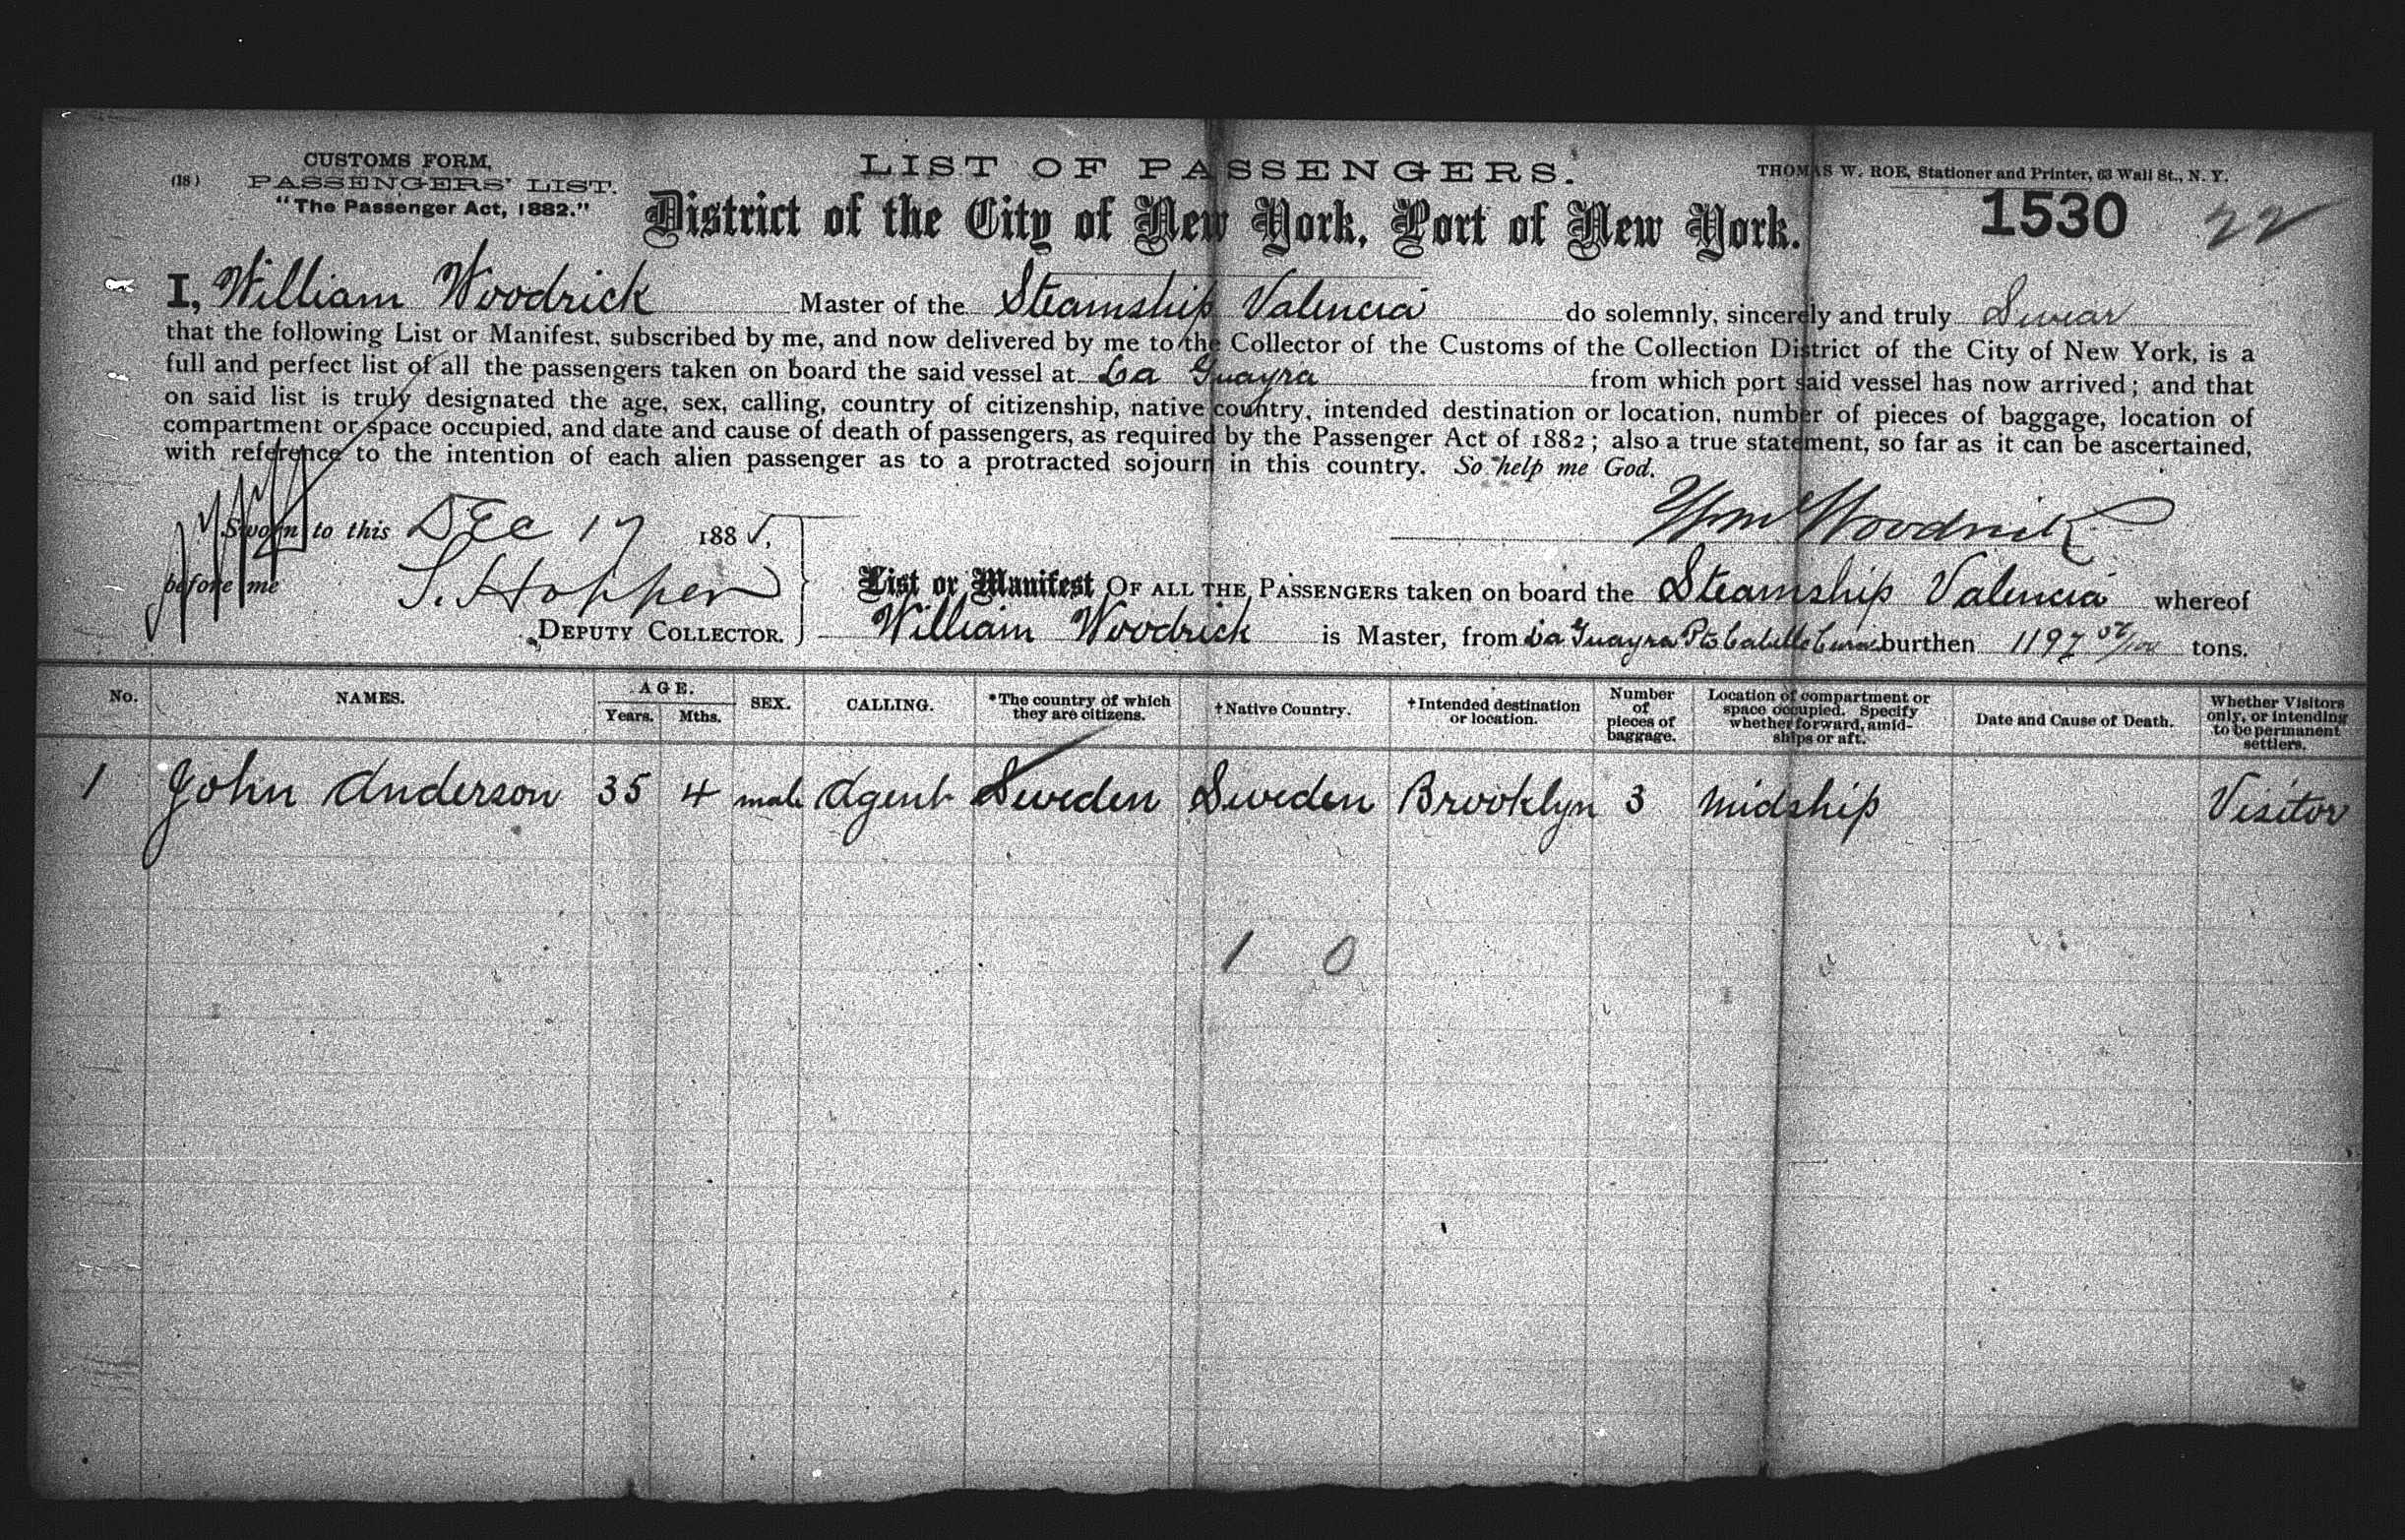 CUSTOMS FORM,
(18) PASSENGERS' LIST.
"The Passenger Act, 1882."
LIST OF PASSENGERS.
THOMAS W. ROE, Stationer and Printer, 63 Wall St., N. Y.
District of the City of New York, Port of New York.
1530 22
I, William Woodrick Master of the Steamship Valencia do solemnly, sincerely and truly Swear
that the following List or Manifest, subscribed by me, and now delivered by me to the Collector of the Customs of the Collection District of the City of New York, is a
full and perfect list of all the passengers taken on board the said vessel at La Guayra from which port said vessel has now arrived; and that
on said list is truly designated the age, sex, calling, country of citizenship, native country, intended destination or location, number of pieces of baggage, location of
compartment or space occupied, and date and cause of death of passengers, as required by the Passenger Act of 1882; also a true statement, so far as it can be ascertained,
with reference to the intention of each alien passenger as to a protracted sojourn in this country. So help me God.
Sworn to this Dec 17 1885,
Wm Woodrick
before me S. Hopper
DEPUTY COLLECTOR.
List or Manifest OF ALL THE PASSENGERS taken on board the Steamship Valencia whereof
William Woodrick is Master, from La Guayra Pto Cabello burthen 1197 tons.
No. NAMES. AGE. Years. Mths. SEX. CALLING. *The country of which they are citizens. †Native Country. †Intended destination or location. Number of pieces of baggage. Location of compartment or space occupied. Specify whether forward, amidships or aft. Date and Cause of Death. Whether Visitors only, or intending to be permanent settlers.
1 John Anderson 35 4 male Agent Sweden Sweden Brooklyn 3 Midship Visitor
1 0